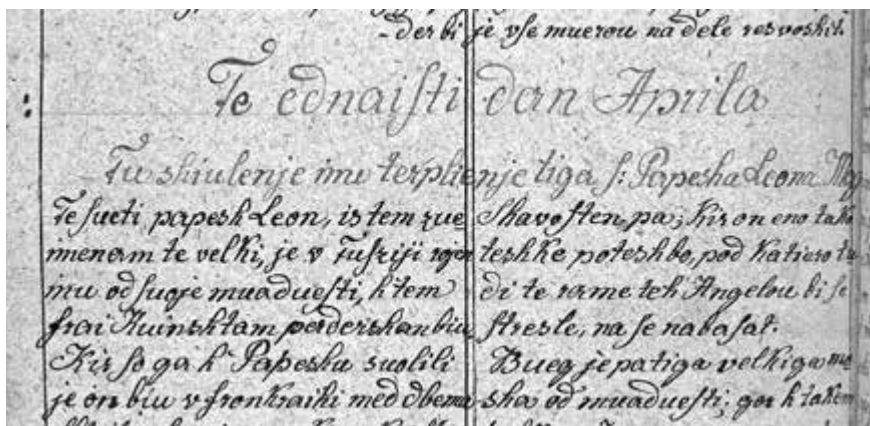 -der bi je vſe muerou na dele resvoshit.
Te ednaiſti dan Aprila
Tu shiulenje inu terplienje tiga ſ: Papesha Leona
Te ſueti papesh Leon, is tem zue
imenam te velki, je v rojen
inu od ſuoje muadueſti, h tem
frai Kuinshtam perdershan biu
Kir ſo ga h' Papeshu suolili
je on biu v fronkraihi med dbema
Skavoſten pa, kir on eno tako
teshke poteshbo, pod katiero tu
di te rame teh Angelou bi ſe
ſtresle, na ſe naba ſat.
Bueg je pa tiga velkiga mo
sha od muadueſti, gor h takem